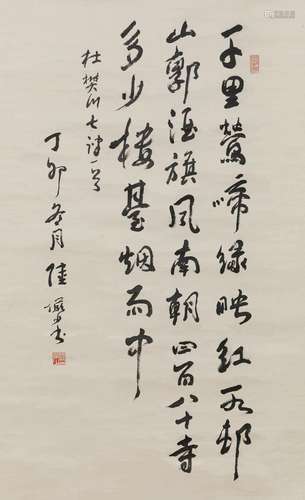 千里鶯啼緑映红水邨
山郭酒旗風南朝四百八十寺
多少楼臺烟雨中
杜樊川七一首
丁卯冬月陸儼少书